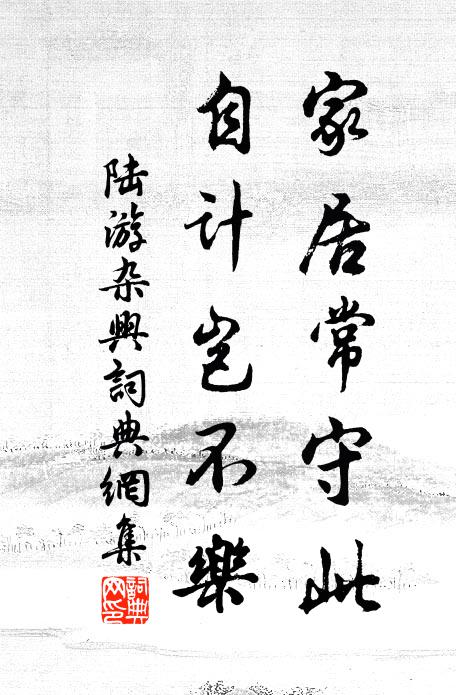 家居常守此
自计岂不樂
陆游杂興詞典網集
詞典網印